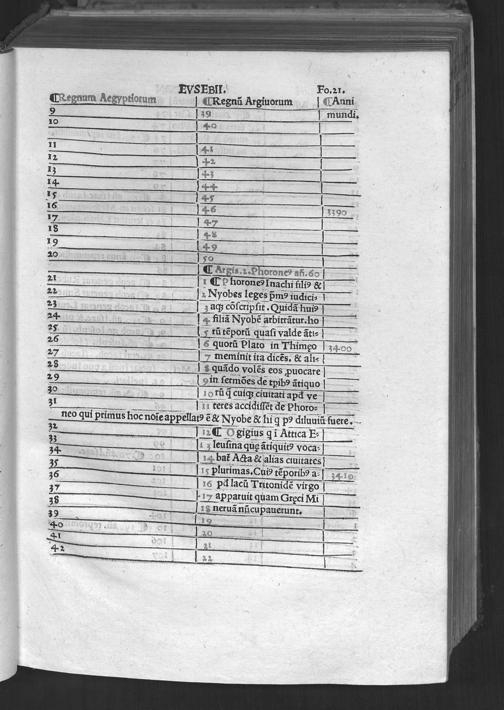 EVSEBII. Fo.21.
¶Regnum Aegyptiorum ¶Regnū Argiuorum ¶Anni
9 39 mundi.
10 40
11 41
12 42
13 43
14 44
15 45
16 46 3390
17 47
18 48
19 49
20 50
¶ Argis.2. Phoroneꝰ añ.60
21 1 ¶ Phoroneꝰ Inachi filiꝰ &
22 2 Nyobes leges pm̃ꝰ iudici-
23 3 aq; cōscripsit. Quidā huiꝰ
24 4 filiā Nyobē arbitrātur. ho
25 5 rū tēporū quasi valde āti-
26 6 quorū Plato in Thimęo 3400
27 7 meminit ita dicēs. & ali-
28 8 quādo volēs eos puocare
29 9 in sermōes de tpibꝰ ātiquo
30 10 rū q̄ cuiq; ciuitati apd ve
31 11 teres accidissēt de Phoro-
neo qui primus hoc noīe appellatꝰ ē & Nyobe & hi q pꝰ diluuiū fuere.
32 12 ¶ Ogigius q ī Attica E-
33 13 leusina quę ātiquitꝰ voca-
34 14 bat̄ Acta & alias ciuitates
35 15 plurimas. Cuiꝰ tēporibꝰ a- 3410
36 16 pd lacū Tritonidē virgo
37 17 apparuit quam Gręci Mi
38 18 neruā nūcupauerunt.
39 19
40 20
41 21
42 22